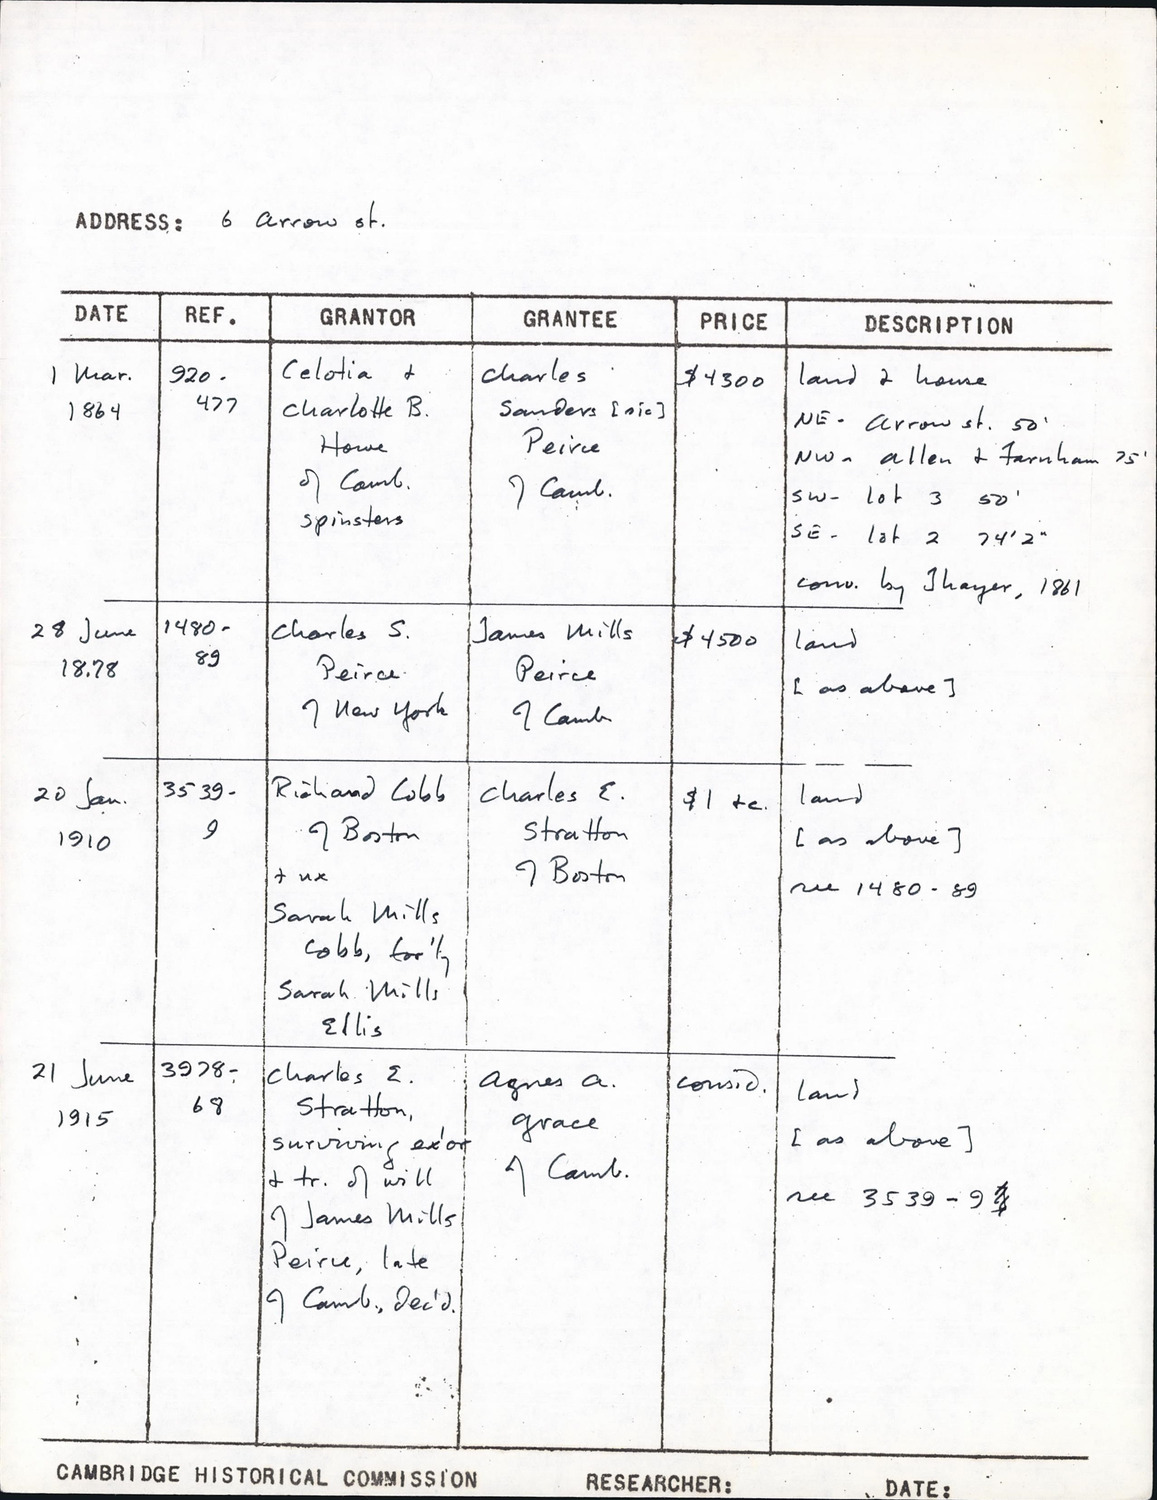 ADDRESS: 6 Arrow st.
DATE REF. GRANTOR GRANTEE PRICE DESCRIPTION
1 Mar.
1864
920-
477
Celotia &
Charlotte B.
Howe
of Camb.
spinsters
Charles
Sanders [sic]
Peirce
of Camb.
$4300
land & house
NE- Arrow st. 50'
NW- Allen & Farnham 75'
SW- lot 3 50'
SE- lot 2 74'2"
conv. by Thayer, 1861
28 June
1878
1480-
89
Charles S.
Peirce
of New York
James Mills
Peirce
of Camb
$4500
land
[as above]
20 Jan.
1910
3539-
9
Richard Cobb
of Boston
& ux
Sarah Mills
Cobb, for'ly
Sarah Mills
Ellis
Charles E.
Stratton
of Boston
$1 &c.
land
[as above]
see 1480-89
21 June
1915
3978-
68
Charles E.
Stratton,
surviving ex'or
& tr. of will
of James Mills
Peirce, late
of Camb., dec'd.
Agnes A.
Grace
of Camb.
consid.
land
[as above]
see 3539-9
CAMBRIDGE HISTORICAL COMMISSION RESEARCHER: DATE: